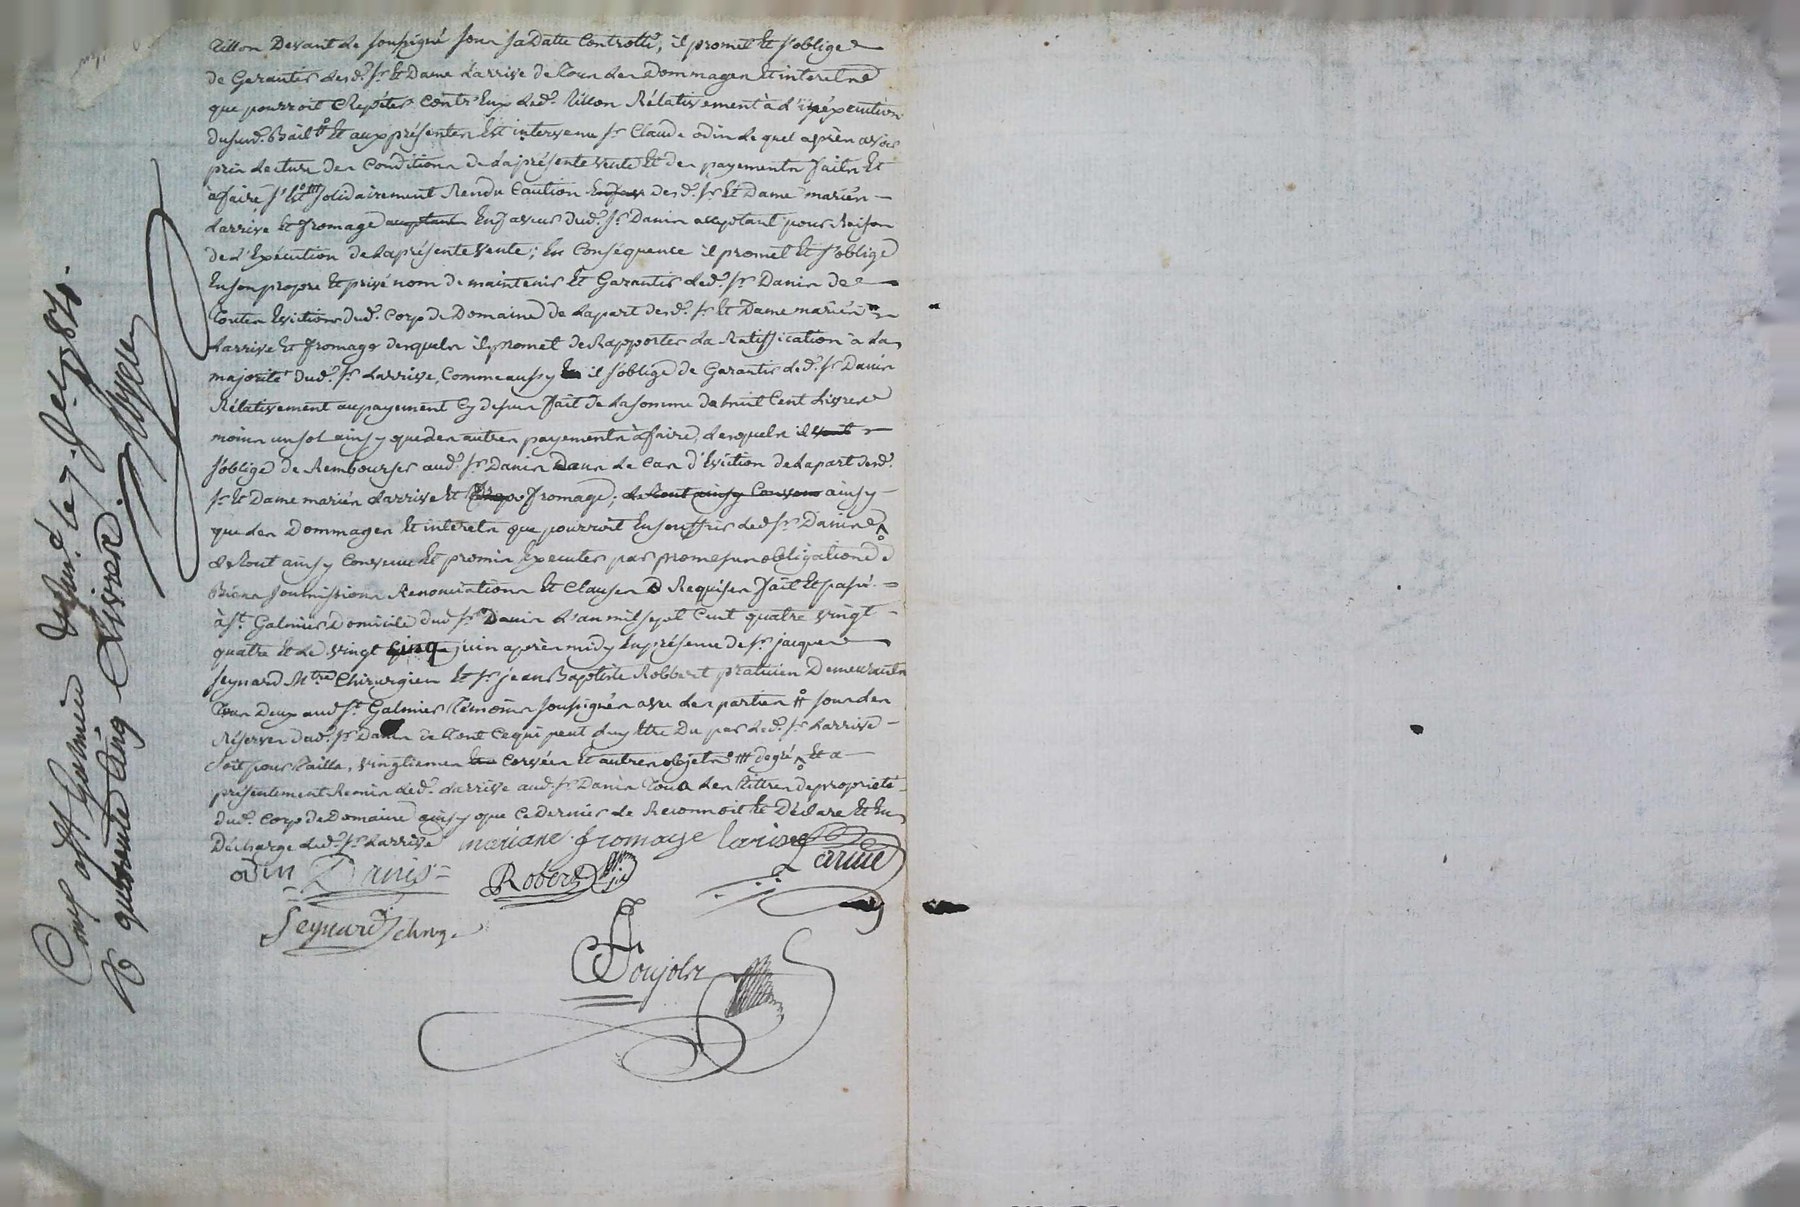 tillon Devant Le soussigné sous sa Datte Controllé, il promet Et s'oblige
de Garantir lesd. Sr Et Dame Larrive de tous les Dommages Et interets
que pourroit Repéter Contr'Eux Led. tillon Rélativement à L'inéxecution
dususd. Bail Et aux présentes Est intervenu Sr Claude odin Lequel après avoir
pris Lecture des Conditions de la présente vente Et des payements faits Et
afaire, s'Est solidairement Rendu Caution desd. Sr Et Dame mariés
Larrive Et fromage Enfaveur dud. Sr Danis acceptant pour Raison
de L'Exécution de la présente vente; En Conséquence il promet Et s'oblige
En son propre Et privé nom de maintenir Et Garantir Led. Sr Danis de
toutes Evictions dud. Corps de Domaine de la part desd. Sr Et Dame mariés
Larrive Et fromage desquels il promet de Rapporter La Ratiffication à La
majorité dud. Sr Larrive, Comme aussy il s'oblige de Garantir Led. Sr Danis
Rélativement au payement Cy dessus fait de La somme de huit Cent Livres
moins un sol ainsy que des autres payements à faire, Lesquels il
s'oblige de Rembourser aud. Sr Danis Dans Le Cas d'Eviction de La part desd.
Sr Et Dame mariés Larrive Et fromage; ainsy
que des Dommages Et interets que pourroit En souffrir Led Sr Danis
Le tout ainsy Convenu Et promis Executer par promesses obligation de
Biens soumissions Renonciations Et Clauses Requises fait Et passé
à St Galmier Domicile dud Sr Danis L'an mil sept Cent quatre vingt
quatre Et Le vingt Cinq juin après midy En présence de Sr jacques
Seynard Mtre Chirurgien Et Sr jean Baptiste Robbert praticien Demeurants
tous Deux aud St Galmier témoins soussignés avec Les parties sous Les
Réserves dud. Sr Danis de tout Ce qui peut Luy Etre Du par Led. Sr Larrive
soit pour taille, vingtiemes Corvées Et autres objets Et a
présentement Remis Led. Larrive aud. Sr Danis tous Les titres de propriété
dud. Corps de Domaine ainsy que Ce dernier Le Reconnoit Et Déclare Et En
Décharge Led. Sr Larrive mariane fromage larive
Larrive
odin Danis Robert
Seynard chirg.
Poujols
Cont. a St Galmier
R. quarente Cinq Livres.